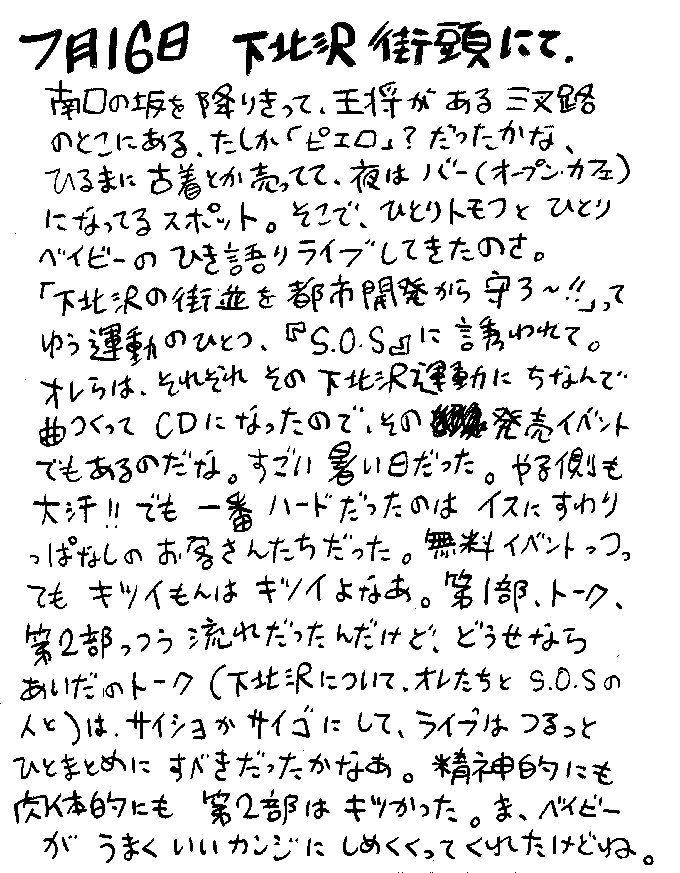 7月16日 下北沢 街頭にて.
南口の坂を降りきって、王将がある三叉路
のとこにある、たしか「ピエロ」?だったかな、
ひるまに古着とか売ってて、夜はバー(オープン・カフェ)
になってるスポット。そこで、ひとりトモフとひとり
ベイビーのひき語りライブしてきたのさ。
「下北沢の街並を都市開発から守ろ〜!!」って
ゆう運動のひとつ、『S.O.S』に誘われて。
オレらは、それぞれその下北沢運動にちなんで
曲つくってCDになったので、その発売イベント
でもあるのだな。すごい暑い日だった。やる側も
大汗!!でも一番ハードだったのはイスにすわり
っぱなしのお客さんたちだった。無料イベントっつっ
てもキツイもんはキツイよなあ。第1部、トーク、
第2部っつう流れだったんだけど、どうせなら
あいだのトーク(下北沢について、オレたちとS.O.Sの
人と)は、サイショかサイゴにして、ライブはつるっと
ひとまとめにすべきだったかなあ。精神的にも
肉体的にも第2部はキツかった。ま、ベイビー
がうまくいいカンジにしめくくってくれたけどね。